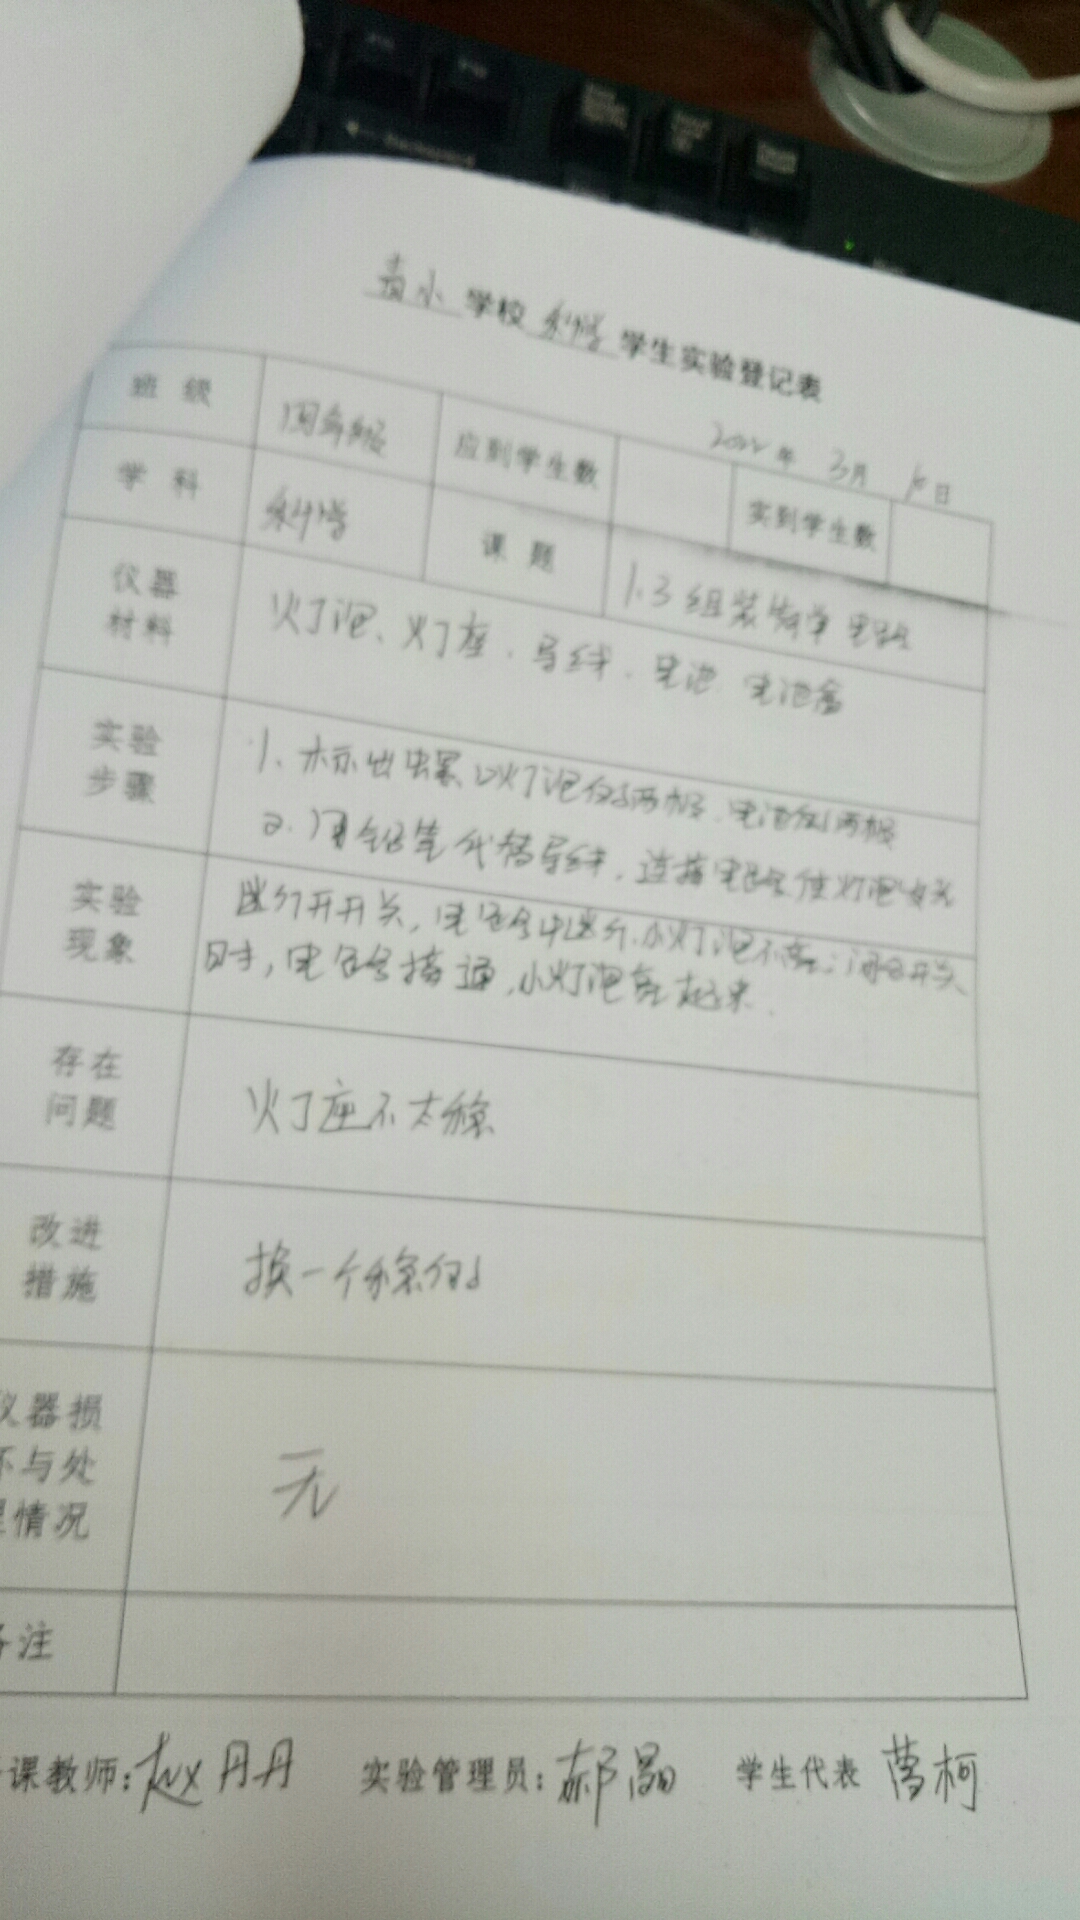 青小 学校 科学 学生实验登记表
2022年 3月 日
班 级 四年级 应到学生数 实到学生数
学 科 科学 课 题 1.3组装简单电路
仪器
材料
灯泡、灯座、导线、电池、电池盒
实验
步骤
1、标出电器、灯泡的两极、电池的两极
2、用铅笔代替导线，连接电路使灯泡发光
实验
现象
断开开关，电路中断开，小灯泡不亮；闭合开关
时，电路接通，小灯泡亮起来。
存在
问题
灯座不太稳
改进
措施
换一个稳的
仪器损
坏与处
理情况
无
备注
课教师：赵丹丹 实验管理员：郝晶 学生代表 葛柯